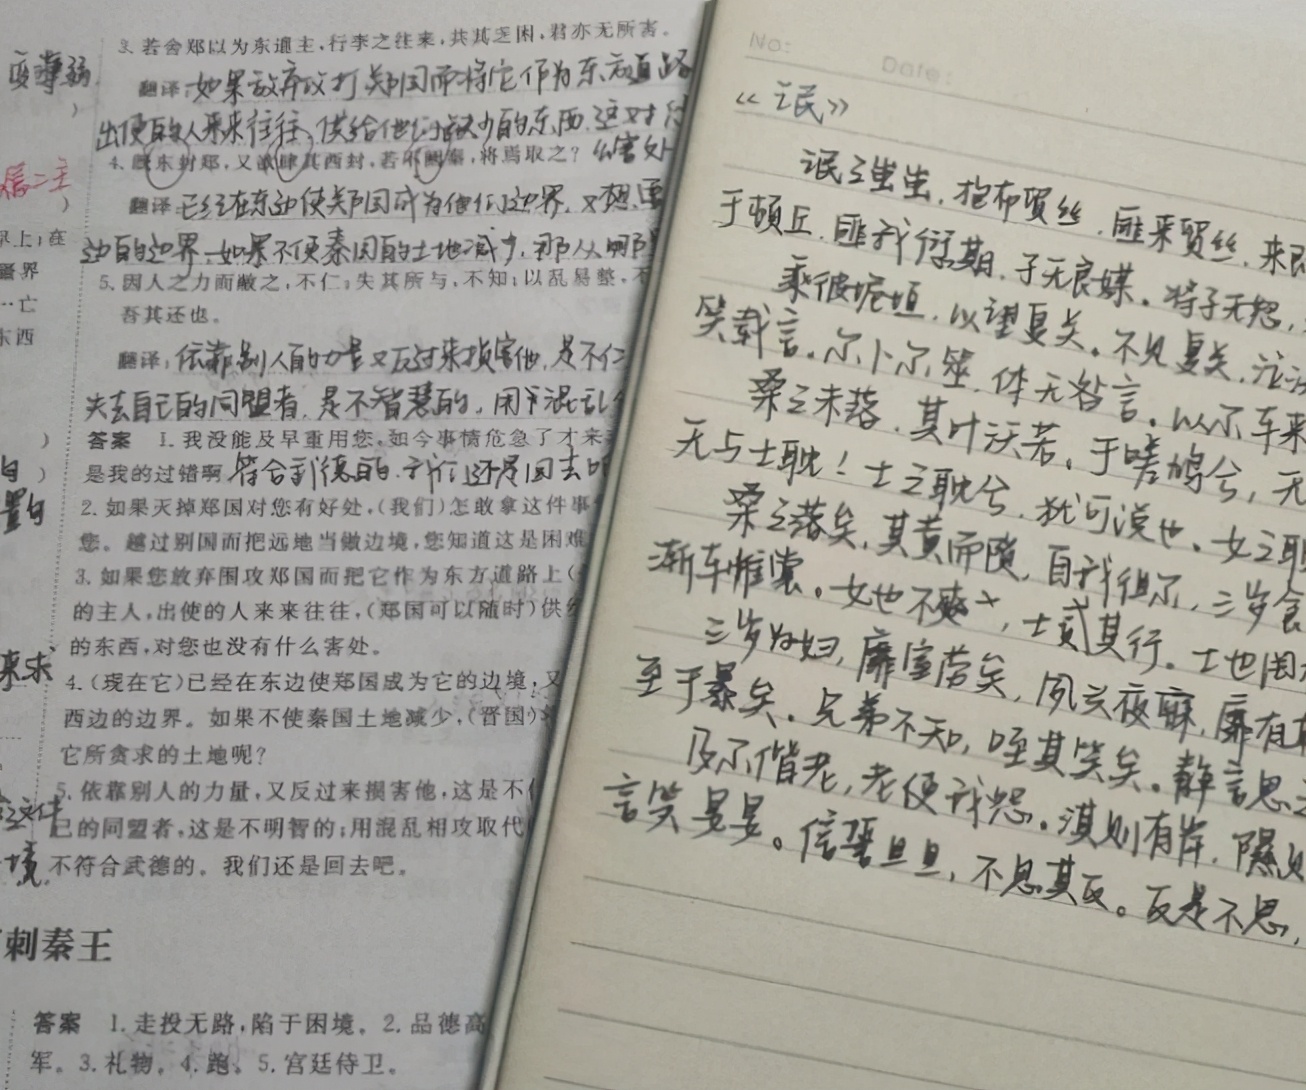 3.若舍郑以为东道主,行李之往来,共其乏困,君亦无所害。
翻译:如果放弃攻打郑国而将它作为东方道路
出使的人来来往往,供给他们缺少的东西.这对
4.既东封郑,又欲肆其西封,若不阙秦,将焉取之?
翻译:已经在东边使郑国成为他们边界.又想
边的边界.如果不使秦国的土地减少,那从哪
5.因人之力而敝之,不仁;失其所与,不知;以乱易整,不
吾其还也。
翻译:依靠别人的力量又反过来损害他,是不仁
失去自己的同盟者,是不智慧的,用混乱
答案 1.我没能及早重用您,如今事情危急了才来
是我的过错啊
符合 的.我们还是回去吧
2.如果灭掉郑国对您有好处,(我们)怎敢拿这件事
您。越过别国而把远地当做边境,您知道这是困难
3.如果您放弃围攻郑国而把它作为东方道路上(
的主人,出使的人来来往往,(郑国可以随时)供给
的东西,对您也没有什么害处。
4.(现在它)已经在东边使郑国成为它的边境,又
西边的边界。如果不使秦国土地减少,(晋国)
它所贪求的土地呢?
5.依靠别人的力量,又反过来损害他,这是不仁
己的同盟者,这是不明智的;用混乱相攻取代
不符合武德的。我们还是回去吧。
刺秦王
答案 1.走投无路,陷于困境。2.品德高
军。3.礼物。4.跑。5.宫廷侍卫。
变薄弱
早上;在
疆界
…亡
东西
来求
境
No:
Date:
《氓》
氓之蚩蚩,抱布贸丝.匪来贸丝,来即
于顿丘.匪我愆期,子无良媒。将子无怒,
乘彼垝垣,以望复关。不见复关,泣
笑载言。尔卜尔筮,体无咎言。以尔车来
桑之未落,其叶沃若。于嗟鸠兮,无
无与士耽!士之耽兮,犹可说也。女之耽
桑之落矣,其黄而陨,自我徂尔,三岁食
渐车帷裳。女也不爽,士贰其行。士也罔
三岁为妇,靡室劳矣,夙兴夜寐,靡有
至于暴矣.兄弟不知,咥其笑矣。静言思之
及尔偕老,老使我怨。淇则有岸,隰则
言笑晏晏。信誓旦旦,不思其反。反是不思,